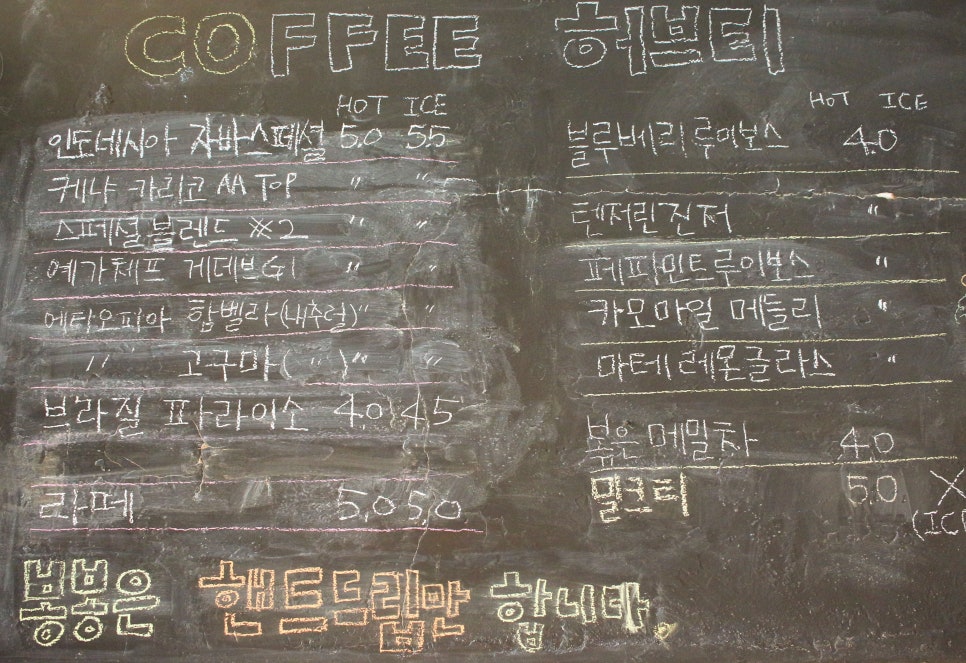 COFFEE
HOT ICE
인도네시아 자바스페셜 5.0 5.5
케냐 카리고 AA TOP 〃 〃
스페셜블렌드 ※2 〃 〃
예가체프 게데브G1 〃 〃
에티오피아 함벨라(내추럴) 〃 〃
〃 고구마(〃) 〃 〃
브라질 파라이소 4.0 4.5
라떼 5.0 5.0
허브티
HOT ICE
블루베리루이보스 4.0
텐저린진저 〃
페퍼민트루이보스 〃
카모마일 메들리 〃
마테레몬글라스 〃
볶은메밀차 4.0
밀크티 5.0 X
봄봄은 핸드드립만 합니다.